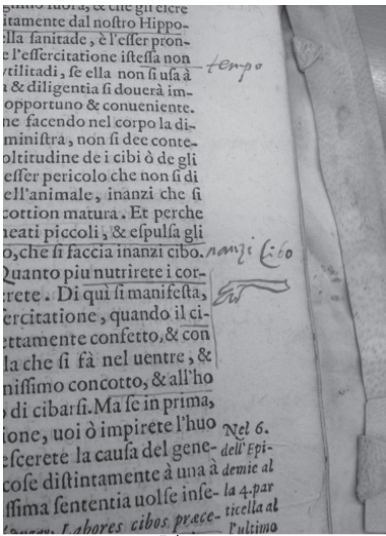 gnino fuora, & che gli eſcre
itamente dal noſtro Hippo-
lla ſanitade, è l'eſſer pron-
e l'eſſercitatione iſteſſa non
vtilitadi, ſe ella non ſi uſa à
tempo
a & diligentia ſi douerà im-
opportuno & conueniente.
ne facendo nel corpo la di-
miniſtra, non ſi dee conte-
oltitudine de i cibi ò de gli
eſſer pericolo che non ſi di
ell'animale, inanzi che ſi
cottion matura. Et perche
neati piccoli, & eſpulſa gli
o, che ſi faccia inanzi cibo.
nanzi Cibo
Quanto piu nutrirete i cor-
rete. Di quì ſi manifeſta,
ercitatione, quando il ci-
ettamente confetto, & con
la che ſi fà nel uentre, &
niſſimo concotto, & all'ho
di cibarſi. Ma ſe in prima,
ione, uoi ò impirete l'huo
eſcerete la cauſa del gene-
coſe diſtintamente à una à
ſſima ſententia uolſe inſe-
Labores cibos præce-
Nel 6.
dell'Epi-
demie al
la 4. par
ticella al
l'ultimo